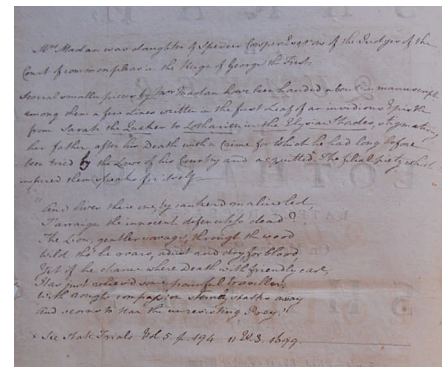 Mrs Madan was daughter of Spencer Cowper Esqr one of the Judges of the
Court of common pleas in the Reign of George the First.
Several smaller pieces by Mrs Madan have been handed about in manuscript
among them a few Lines written in the first Leaf of an invidious Epistle
from Sarah the Quaker to Lothario in the Elysian Shades, stigmatizing
her father after his Death with a Crime for which he had long before
been tried by the Laws of his Country and acquitted. The filial piety which
inspired them speaks for itself
"And lives there one by cankered malice led,
T'arraign the innocent defenceless dead?
The Lion, gentler savage, through the wood
Wild tho' he roars, and dry for blood
Yet if he chance where Death with friendly care,
Has just relieved some painful traveller,
With rough compassion away
and scorns to tear the unresisting Prey."
See State Trials Vol. 5 p. 194 11 W. 3. 1699